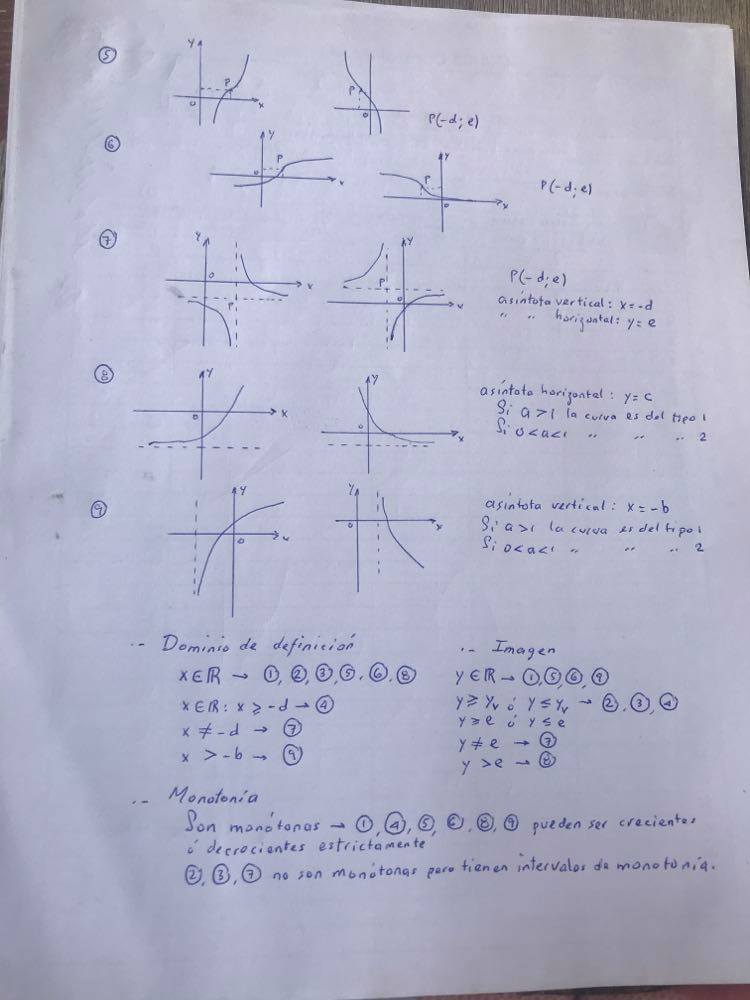 ⑤ y P o x P o P(-d; e)
⑥ y P o x y P o x P(-d; e)
⑦ y o x P y P o x P(-d; e)
asíntota vertical: x = -d
" " horizontal: y = e
⑧ y o x y o x asíntota horizontal: y = c
Si a > 1 la curva es del tipo 1
Si 0 < a < 1 " " " 2
⑨ y o x y o x asíntota vertical: x = -b
Si a > 1 la curva es del tipo 1
Si 0 < a < 1 " " " 2
.- Dominio de definición
x ∈ ℝ → ①, ②, ③, ⑤, ⑥, ⑧
x ∈ ℝ: x ≥ -d → ④
x ≠ -d → ⑦
x > -b → ⑨
.- Imagen
y ∈ ℝ → ①, ⑤, ⑥, ⑨
y ≥ yᵥ ó y ≤ yᵥ → ②, ③, ④
y ≥ e ó y ≤ e
y ≠ e → ⑦
y > e → ⑧
.- Monotonía
Son monótonas → ①, ④, ⑤, ⑥, ⑧, ⑨ pueden ser crecientes
ó decrecientes estrictamente
②, ③, ⑦ no son monótonas pero tienen intervalos de monotonía.